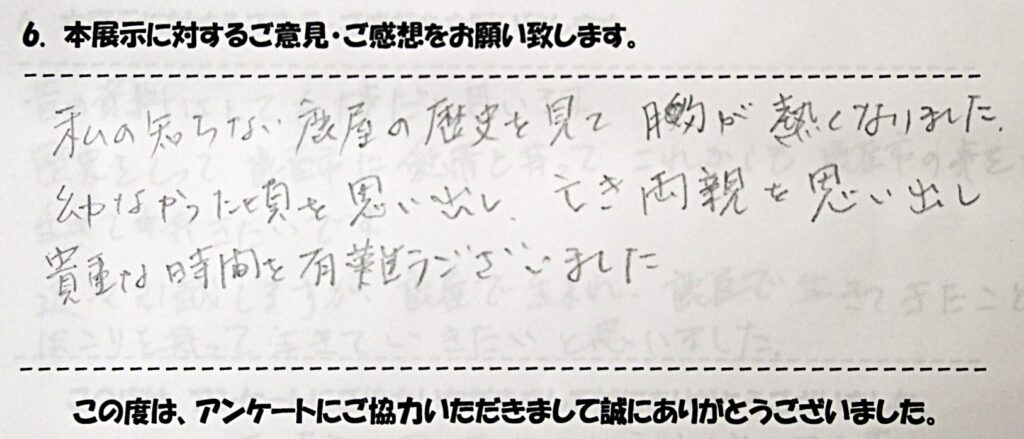 6. 本展示に対するご意見・ご感想をお願い致します。
私の知らない鹿屋の歴史を見て 胸が熱くなりました.
幼なかった頃を思い出し、亡き両親を思い出し
貴重な時間を有難うございました
この度は、アンケートにご協力いただきまして誠にありがとうございました。